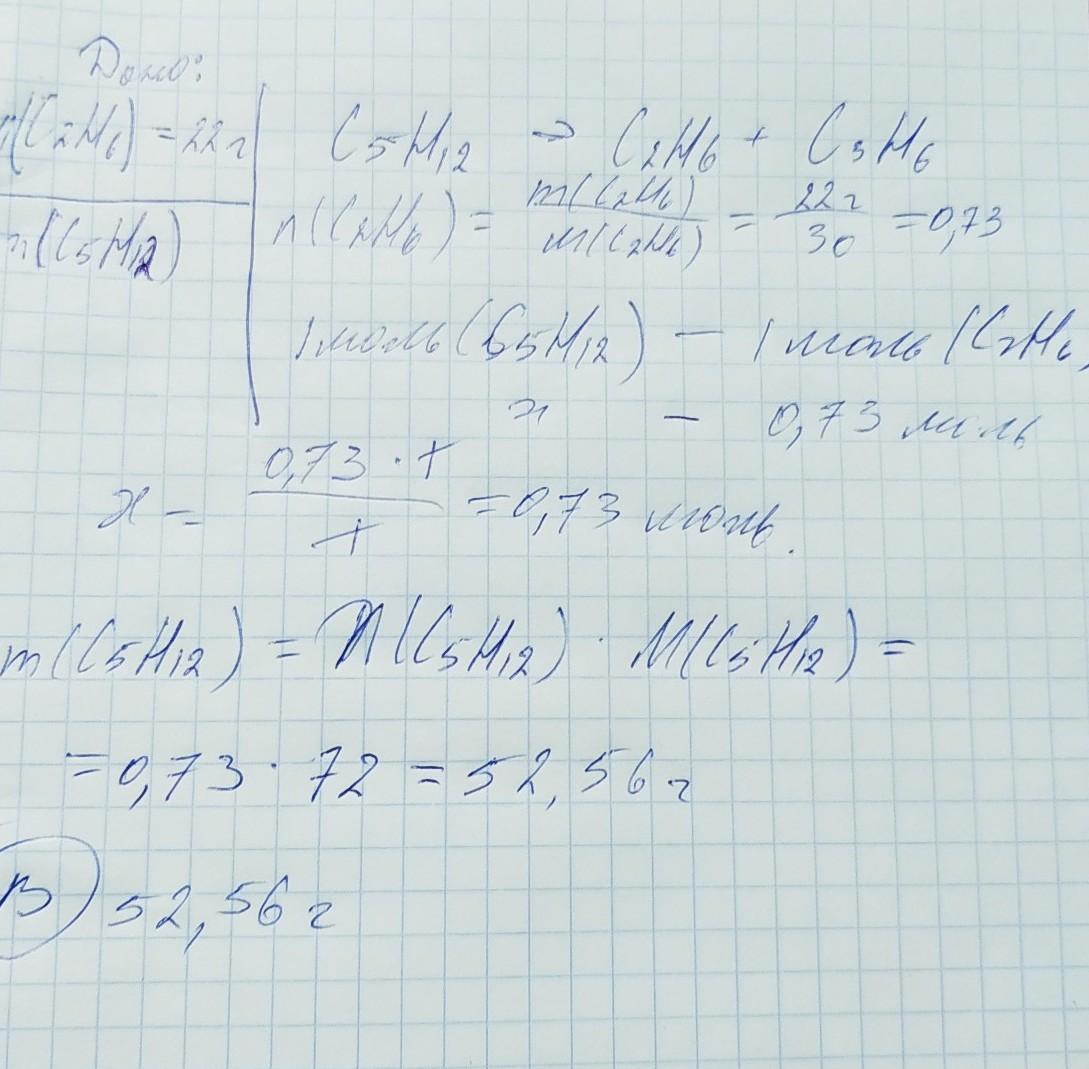 Дано:
m(C₂H₆) = 22г
m(C₅H₁₂)
C₅H₁₂ → C₂H₆ + C₃H₆
n(C₂H₆) = m(C₂H₆) / M(C₂H₆) = 22г / 30 = 0,73
1 моль (C₅H₁₂) — 1 моль (C₂H₆)
x — 0,73 моль
x = 0,73 · 1 / 1 = 0,73 моль.
m(C₅H₁₂) = n(C₅H₁₂) · M(C₅H₁₂) =
= 0,73 · 72 = 52,56 г
В) 52,56 г